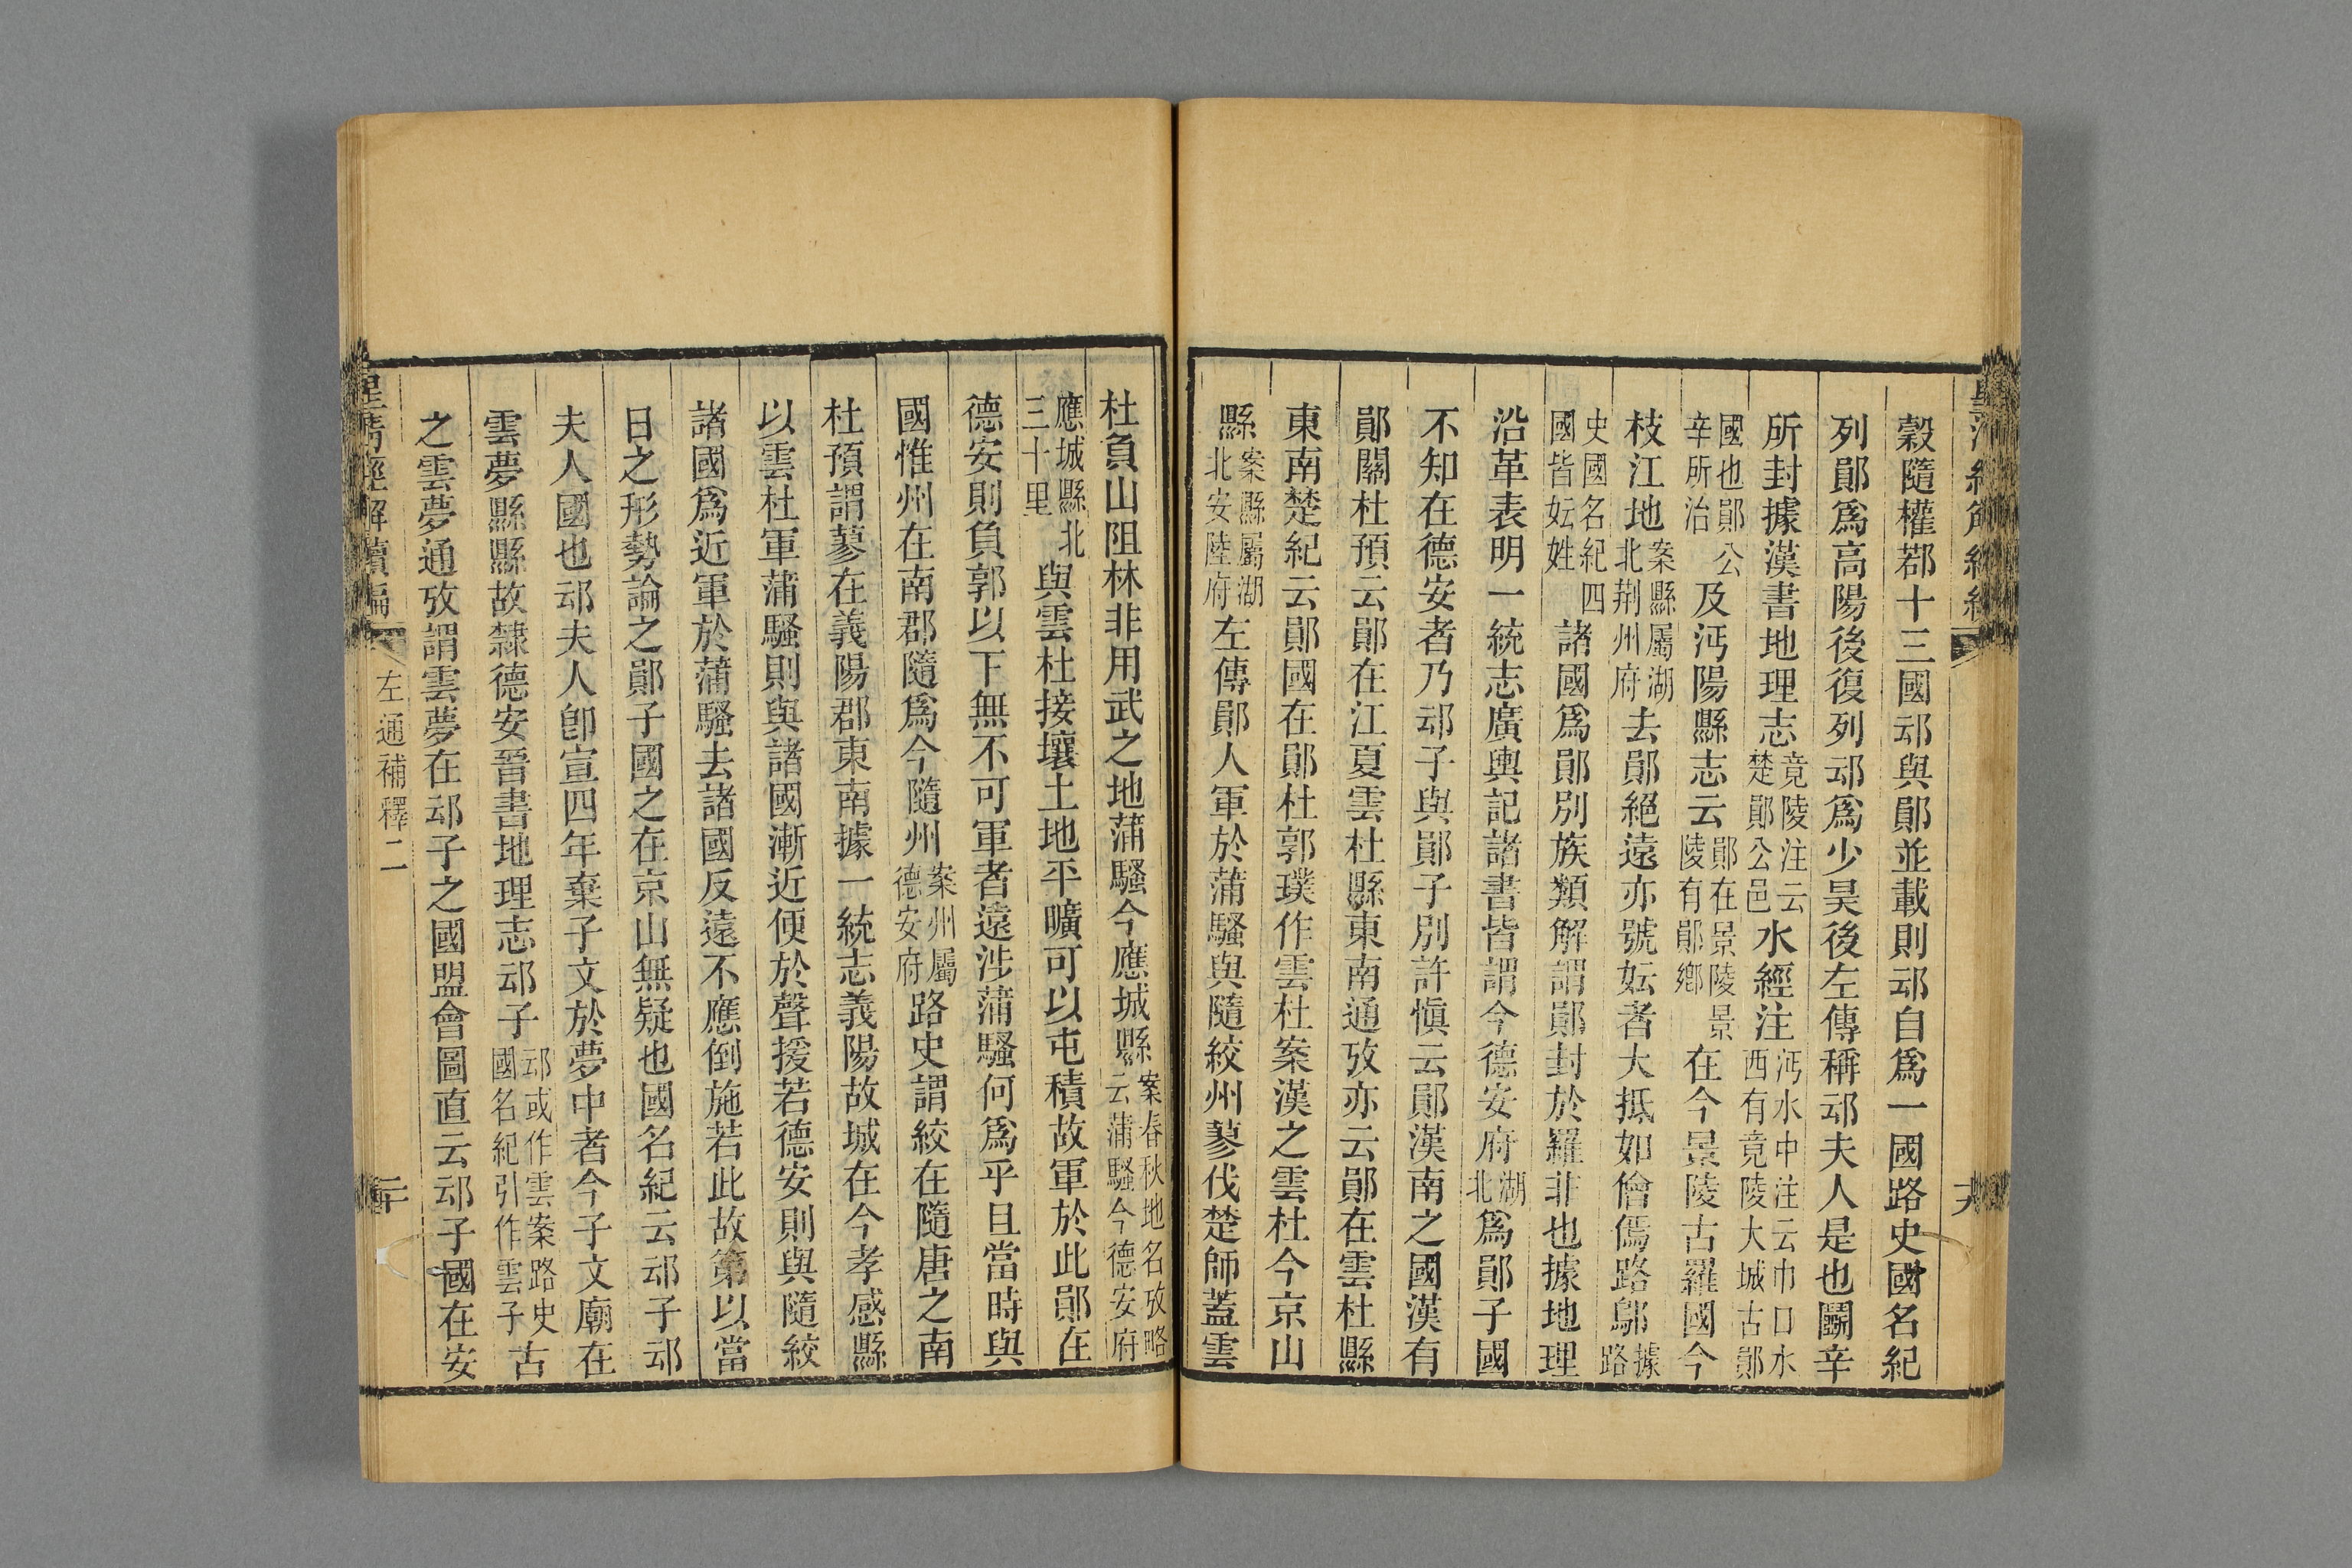 穀隨權鄀十三國䢵與鄖並載則䢵自爲一國路史國名紀
列鄖爲高陽後復列䢵爲少昊後左傳稱䢵夫人是也鬭辛
所封據漢書地理志竟陵注云楚鄖公邑水經注沔水中注云巾口水西有竟陵大城古鄖
國也鄖公辛所治及沔陽縣志云鄖在景陵景陵有鄖鄉在今景陵古羅國今
枝江地案縣屬湖北荆州府去鄖絕遠亦號妘者大抵如儈偊路鄔據路
史國名紀四國皆妘姓諸國爲鄖別族類解謂鄖封於羅非也據地理
沿革表明一統志廣輿記諸書皆謂今德安府湖北爲鄖子國
不知在德安者乃䢵子與鄖子別許愼云鄖漢南之國漢有
鄖關杜預云鄖在江夏雲杜縣東南通攷亦云鄖在雲杜縣
東南楚紀云鄖國在鄖杜郭璞作雲杜案漢之雲杜今京山
縣案縣屬湖北安陸府左傳鄖人軍於蒲騷與隨絞州蓼伐楚師蓋雲
杜負山阻林非用武之地蒲騷今應城縣案春秋地名攷略云蒲騷今德安府
應城縣北三十里與雲杜接壤土地平曠可以屯積故軍於此鄖在
德安則負郭以下無不可軍者遠涉蒲騷何爲乎且當時與
國惟州在南郡隨爲今隨州案州屬德安府路史謂絞在隨唐之南
杜預謂蓼在義陽郡東南據一統志義陽故城在今孝感縣
以雲杜軍蒲騷則與諸國漸近便於聲援若德安則與隨絞
諸國爲近軍於蒲騷去諸國反遠不應倒施若此故第以當
日之形勢論之鄖子國之在京山無疑也國名紀云䢵子䢵
夫人國也䢵夫人卽宣四年棄子文於夢中者今子文廟在
雲夢縣縣故隸德安晉書地理志䢵子䢵或作雲案路史國名紀引作雲子古
之雲夢通攷謂雲夢在䢵子之國盟會圖直云䢵子國在安
左通補釋二